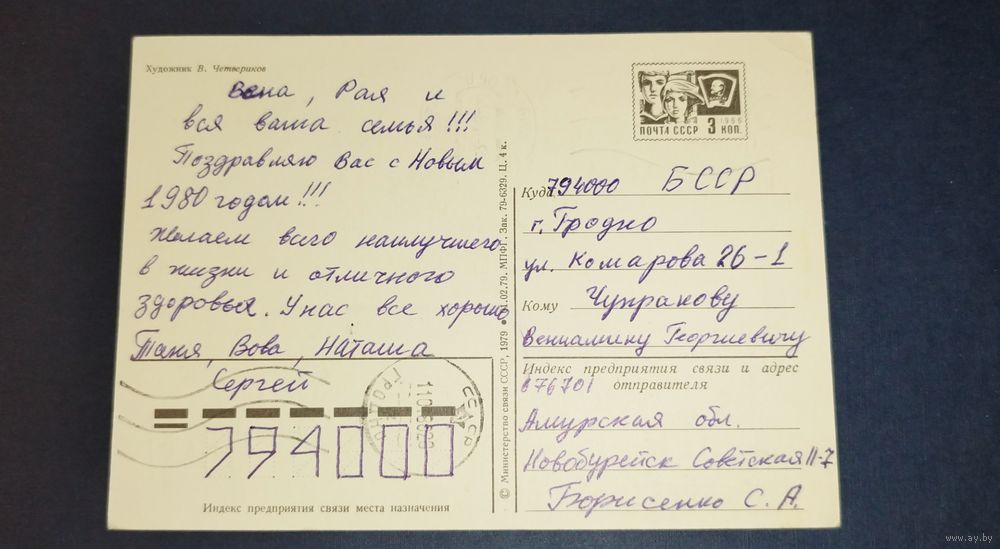 Художник В. Четвериков
Вена, Рая и
вся ваша семья!!!
Поздравляю Вас с Новым
1980 годом!!!
Желаем всего наилучшего
в жизни и отличного
здоровья. У нас все хорошо
Таня, Вова, Наташа
Сергей
794000
Индекс предприятия связи места назначения
© Министерство связи СССР, 1979 • 1.02.79. МПФГ. Зак. 79-6329. Ц. 4 к.
1966
ПОЧТА СССР 3 КОП.
Куда 794000 БССР
г. Гродно
ул. Комарова 26-1
Кому Чупракову
Вениамину Георгиевичу
Индекс предприятия связи и адрес
676701 отправителя
Амурская обл.
Новобурейск Советская 11-7
Борисенко С. А.
СССР
www.ay.by